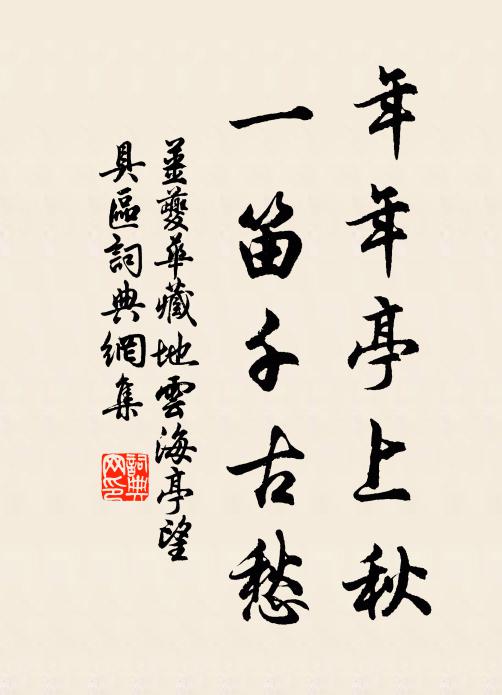 年年亭上秋
一笛千古愁
姜夔華藏地雲海亭望
具區詞典網集
詞典網印